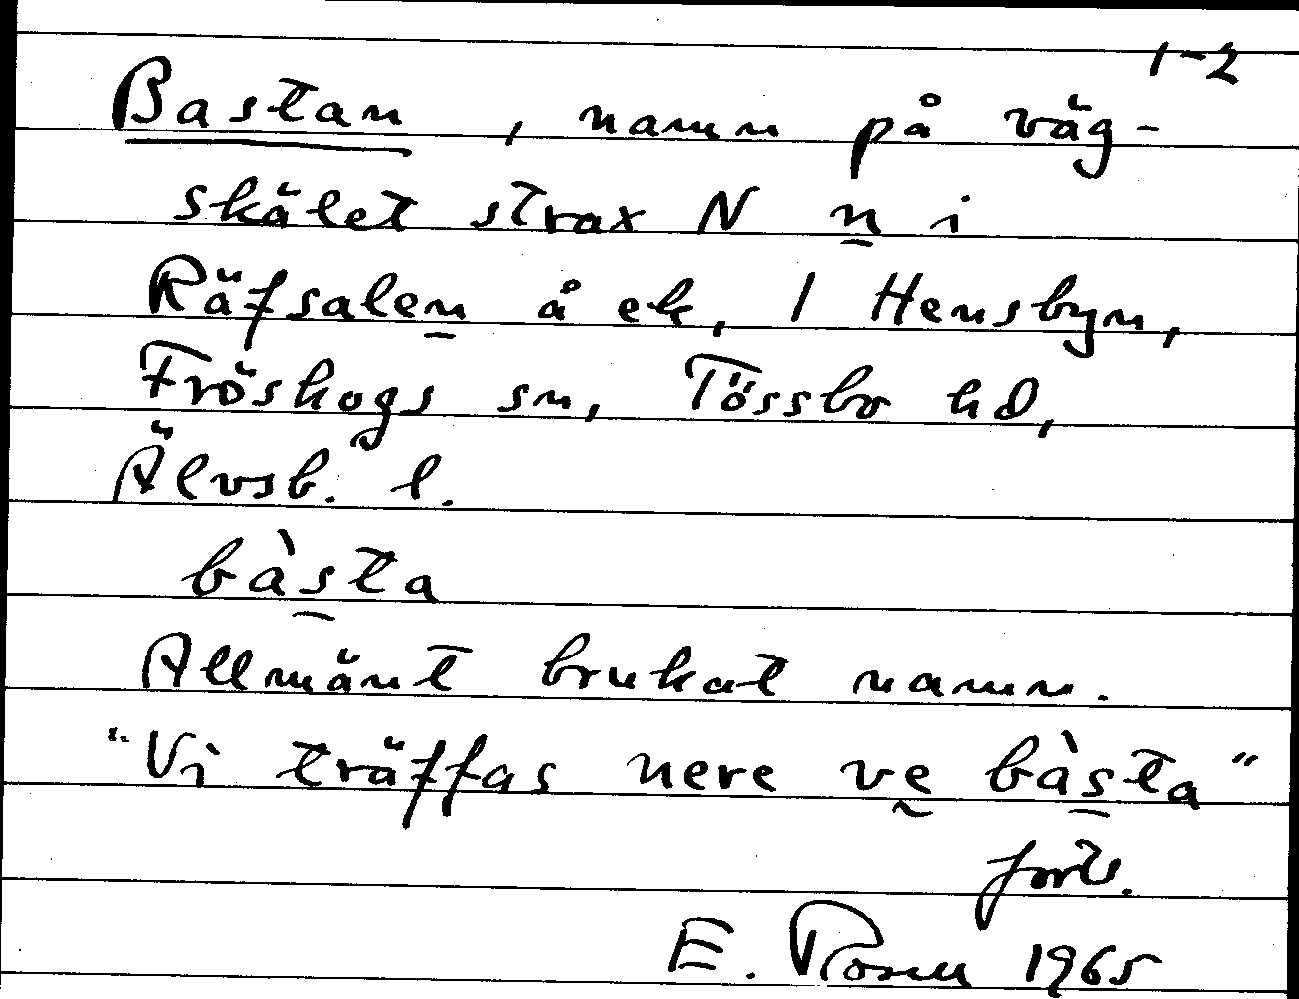 1-2
Bastan, namn på väg-
skälet strax N n i
Räfsalen å ek, 1 Hensbyn,
Fröskogs sn, Tössbo hd,
Älvsb. l.
bàsta
Allmänt brukat namn.
"Vi träffas nere ve bàsta"
forts.
E. Rosell 1965